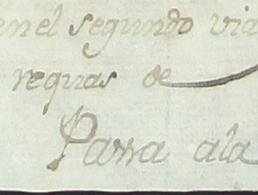 en el segundo via
requas de
Parra a la